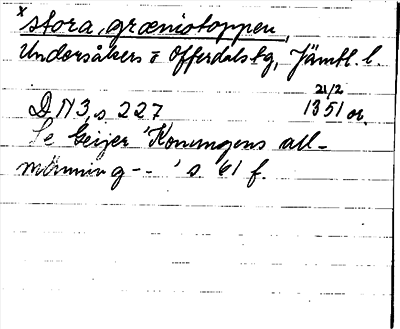 x stora, græniotoppen,
Undersåkers o Offerdals tg, Jämtl. l.
21/2
D N 3, s 227 1351 or.
Se Geijer 'Konungens all-
männing -- ' s. 61 f.